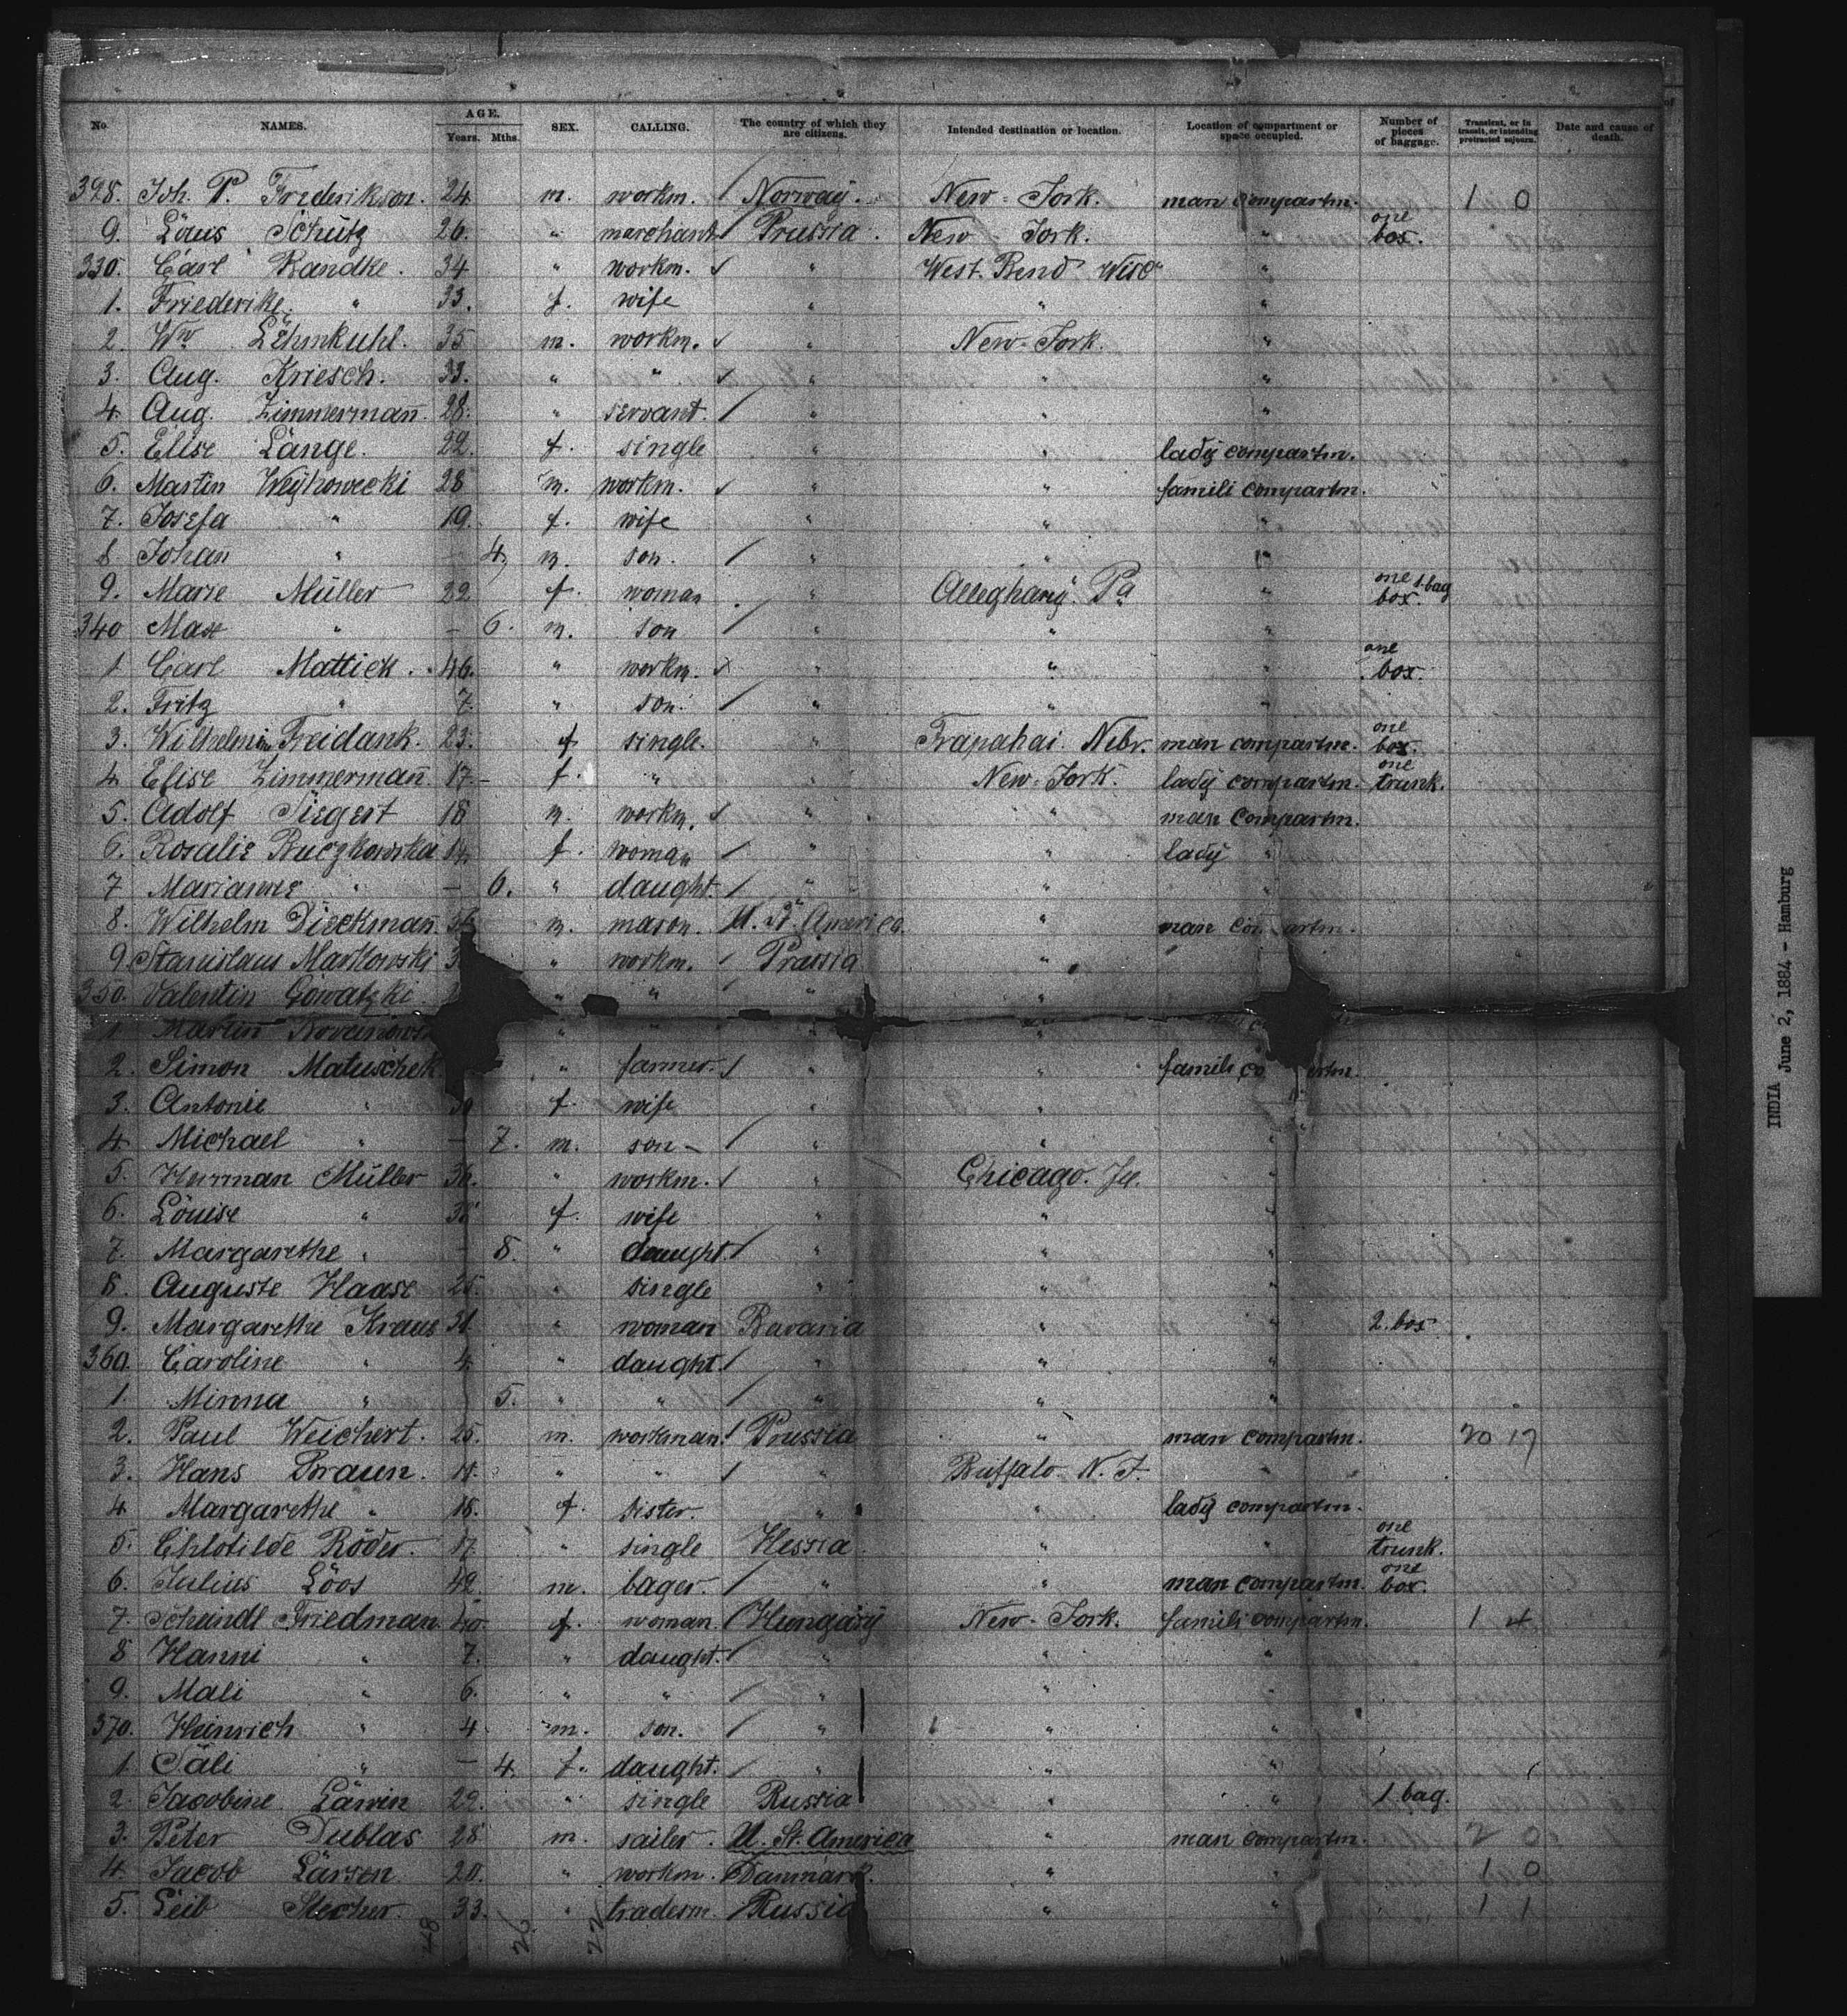 No. NAMES. AGE. Years. Mths. SEX. CALLING. The country of which they are citizens. Intended destination or location. Location of compartment or space occupied. Number of pieces of baggage. Transient, or in transit, or intending protracted sojourn. Date and cause of death.
398. Joh. P. Frederikson. 24 m. workm. Norway. New-York. man compartm. 1 0
9. Louis Schütz 26. " marchand Prussia. New York. " one box.
330. Carl Randke. 34 " workm. " West Bend Wisc "
1. Friederike " 33. f. wife " " "
2. Wm Lehmkuhl. 35 m. workm. " New-York. "
3. Aug. Kriesch. 33. " " " " "
4. Aug. Zimmermañ. 28. " servant. " " "
5. Elise Lange. 22. f. single " " lady compartm.
6. Martin Weykowecki 28 m. workm. " " famili compartm.
7. Josefa " 19. f. wife " " "
8. Johan " — 4. m. son. " " "
9. Marie Müller 22 f. woman " Alleghany. Pa " one box. 1 bag
340 Max " — 6. m. son " " "
1 Carl Mattick. 46. " workm. " " " one box.
2. Fritz " 7. " son. " " "
3. Wilhelmin Freidank. 23. f single. " Trapahai. Nebr. man compartm. one box.
4 Elise Zimmermañ. 17- f. " " New-York. lady compartm. one trunk.
5. Adolf Siegert 18 m. workm. " " man compartm.
6. Rosalie Buczkowska f. woman " " lady "
7 Marianne " — 6. " daught. " " "
8. Wilhelm Dieckmañ. m. mason. U. St. America. " man
9. Stanislaus Markowski " workm. Prussia "
350. Valentin Gowatzki. " " " "
1. Martin " " " "
2. Simon Matuschek " farmer. " " famili
3. Antonie " f. wife " "
4 Michael " — 7. m. son- " " "
5. Herrman Müller 36. " workm. " Chicago. Ill. "
6. Louise " f. wife " " "
7. Margarethe " — 8. " daught. " " "
8. Auguste Haase 25. " single " " "
9. Margarethe Kraus 31. " woman Bavaria " " 2. box
360. Caroline " 4. " daught. " " "
1. Minna " 5. " " " " "
2. Paul Weichert. 25. m. workman. Prussia " man compartm. 20 17
3. Hans Braun. " " " Buffalo. N. Y. "
4 Margarethe " 18. f. sister. " " lady compartm.
5. Chlotilde Röder. 17. " single Hessia " " one trunk.
6. Julius Loos 42. m. bager. " " man compartm. one box.
7. Scheindl Friedman. 40. f. woman. Hungary New-York. famili compartm. 1 4
8 Hanni " 7. " daught. " " "
9. Mali " 6. " " " " "
370. Heinrich " 4 m. son. " " "
1 Sali " — 4. f. daught. " " "
2. Jacobine Lawin 22. " single Russia " " 1 bag.
3. Peter Dublas 28 m. sailer. U. St. America " man compartm. 2 0
4. Jacob Larsen 20. " workm. Danmark. " " 1 0
5. Leib Stecher. 33. " tradesm. Russia " " 1 1
48 26 22
INDIA June 2, 1884 - Hamburg